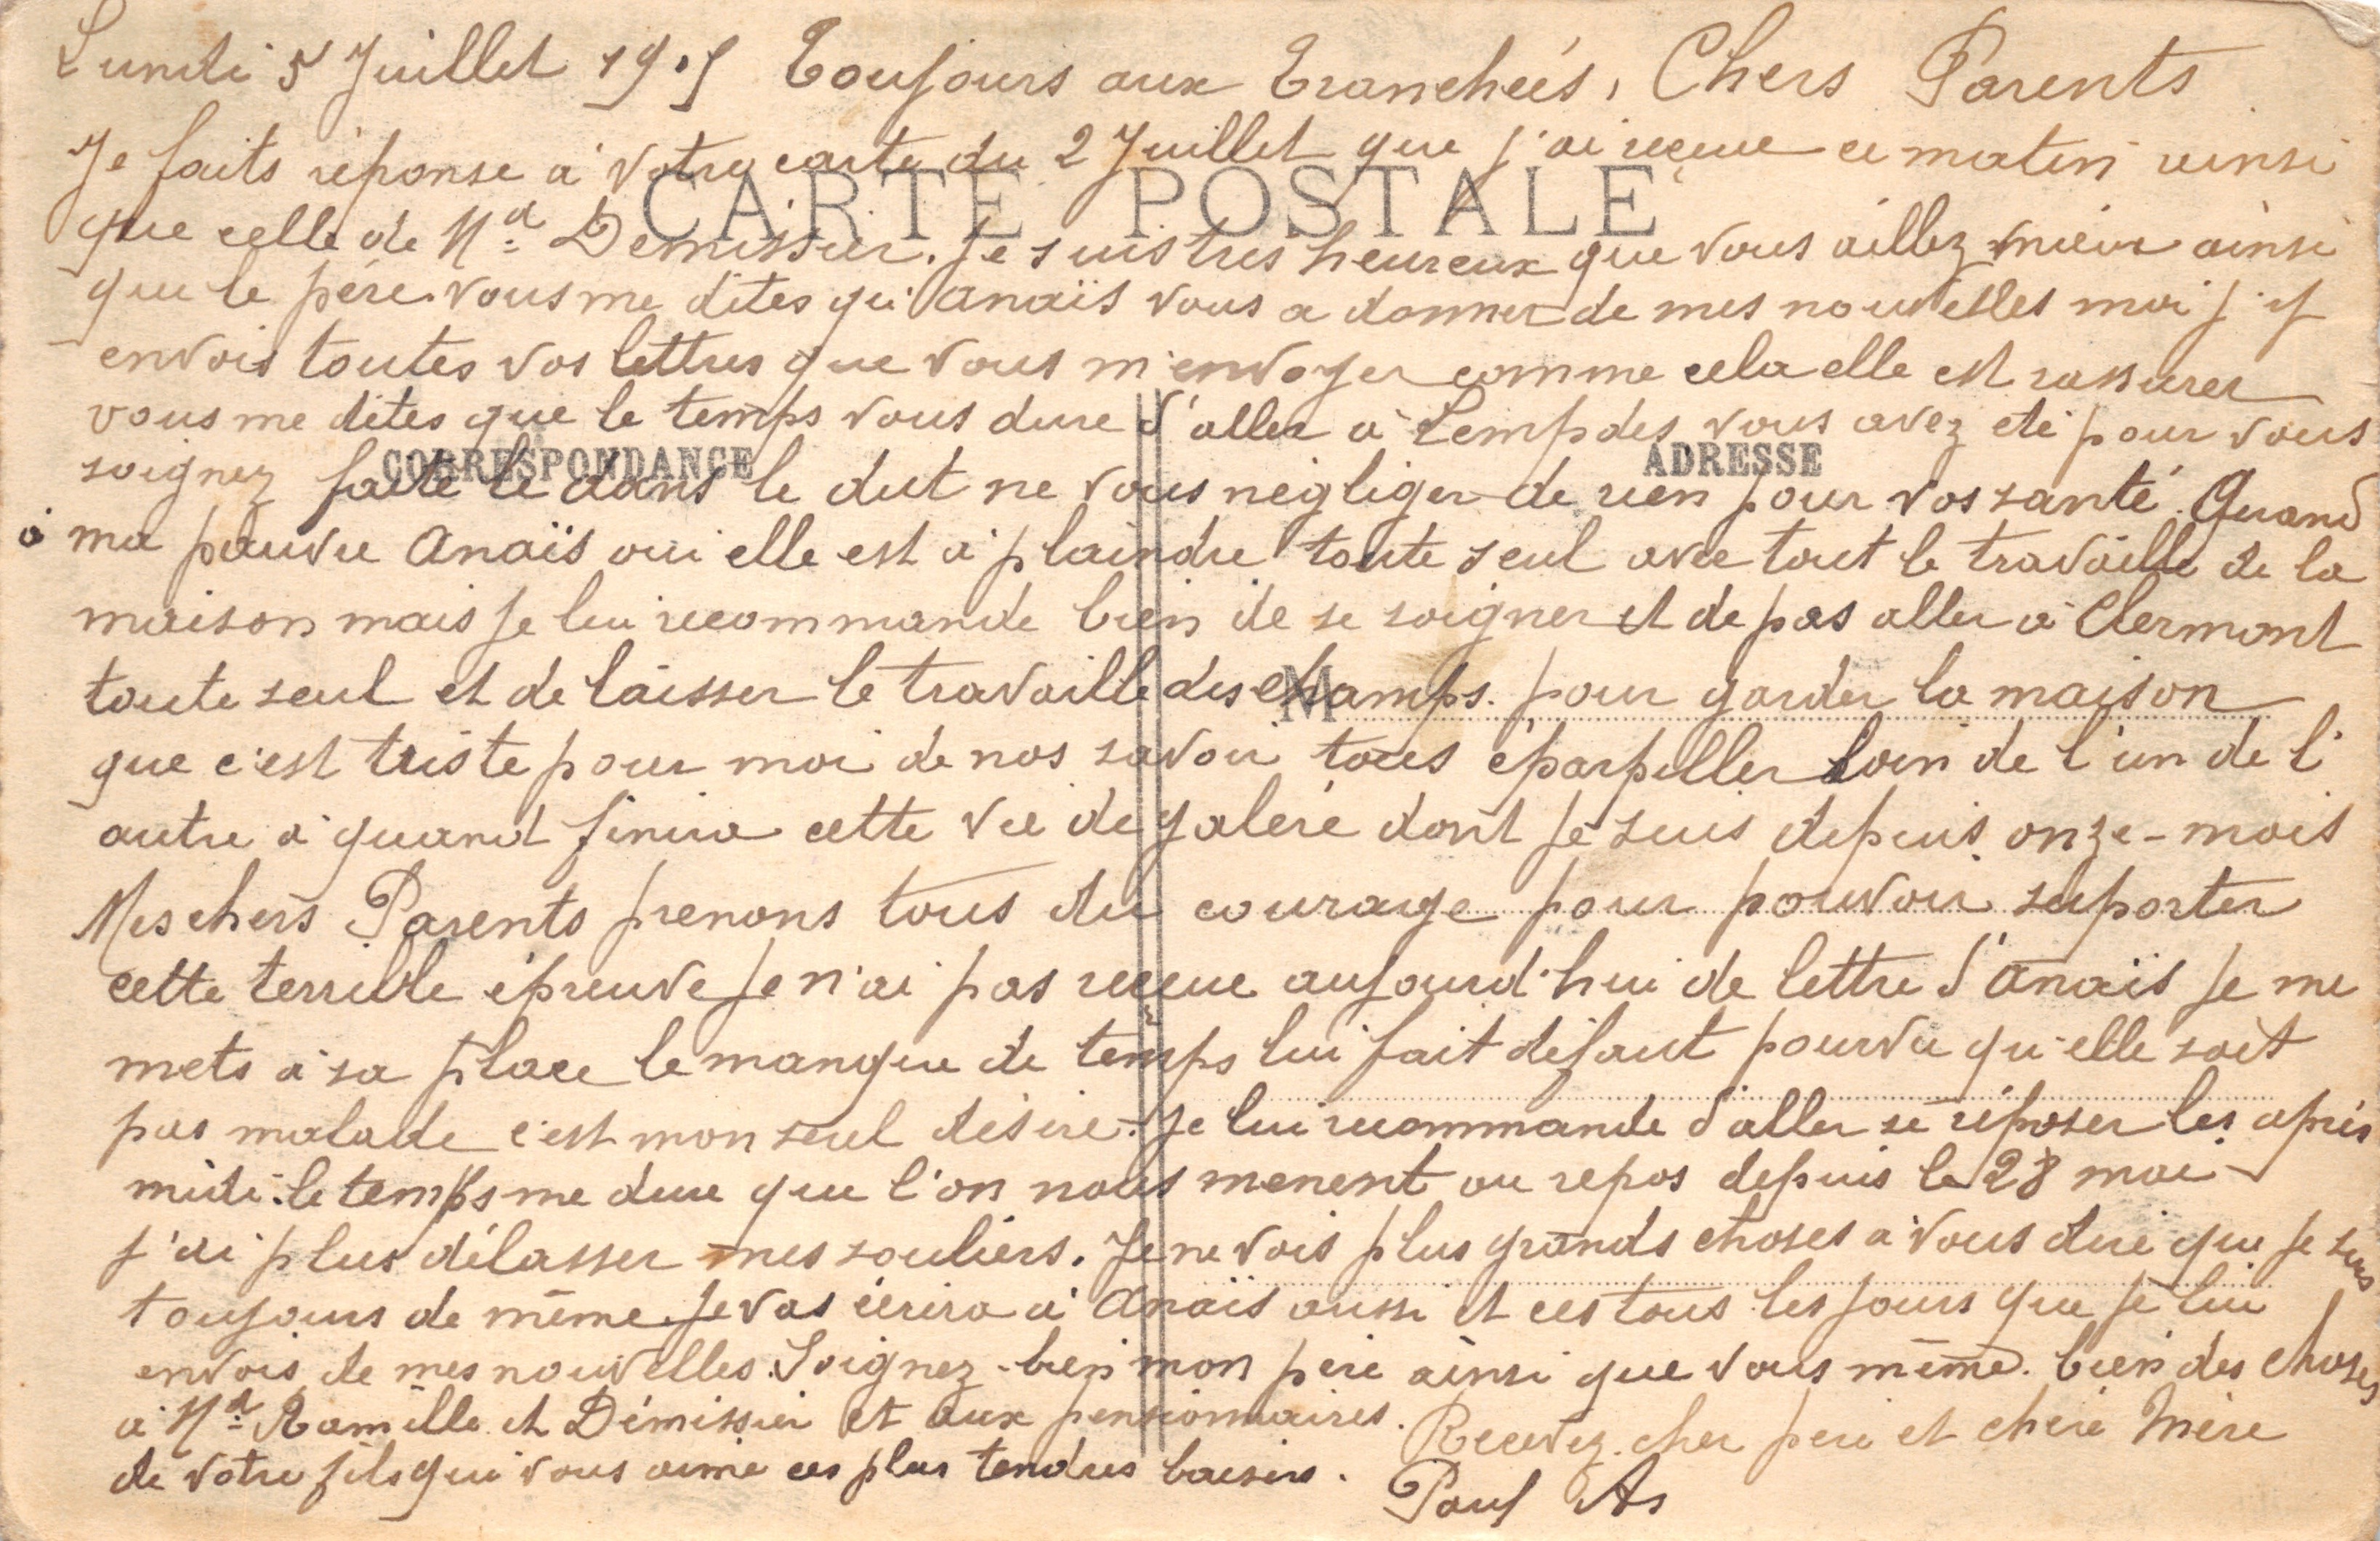 Lundi 5 Juillet 1915 Toujours aux Tranchéés, Chers Parents
Je faits réponse à Votre carte du 2 Juillet que j'ai reçeue ce matin ainsi
CARTE POSTALE
que celle de Md Demissier. Je suis très heureux que vous aillez mieux ainsi
que le père. Vous me dites qu'Anaïs vous a donner de mes nouvelles moi j'y
envois toutes vos lettres que vous m'envoyer comme cela elle est rassurer
vous me dites que le temps vous dure d'aller à Lempdes vous avez eté pour vous
CORRESPONDANCE ADRESSE
soignez faite le dans le but ne vous négliger de rien pour vos santé. Quand
à ma pauvre Anaïs oui elle est à plaindre toute seul avec tout le travaille de la
maison mais je lui recommande bien de se soigner et de pas aller à Clermont
toute seul et de laisser le travaille des champs. pour garder la maison
M
que c'est triste pour moi de nos savoir tous éparpiller loin de l'un de l'
autre à quand finira cette vie de galère dont je suis depuis onze-mois
Mes chers Parents prenons tous du courage pour pouvoir suporter
cette terrible épreuve je n'ai pas reçeue aujourd'hui de lettre d'Anaïs je me
mets à sa place le manque de temps lui fait défaut pourvu qu'elle soit
pas malade c'est mon seul désire. je lui recommande d'aller se réposer les après
midi. le temps me dure que l'on nous menent au repos depuis le 28 mai
j'ai plus délasser mes souliers. Je ne vois plus grands choses à vous dire que je suis
toujours de même. je vas écrira à Anaïs aussi et ces tous les jours que je lui
envois de mes nouvelles. Soignez-bien mon père ainsi que vous même. bien des choses
à Md Ramille et Démissier et aux pensionnaires. Recevez cher père et chère Mère
de votre fils qui vous aime ces plus tendres baisers. Paul As